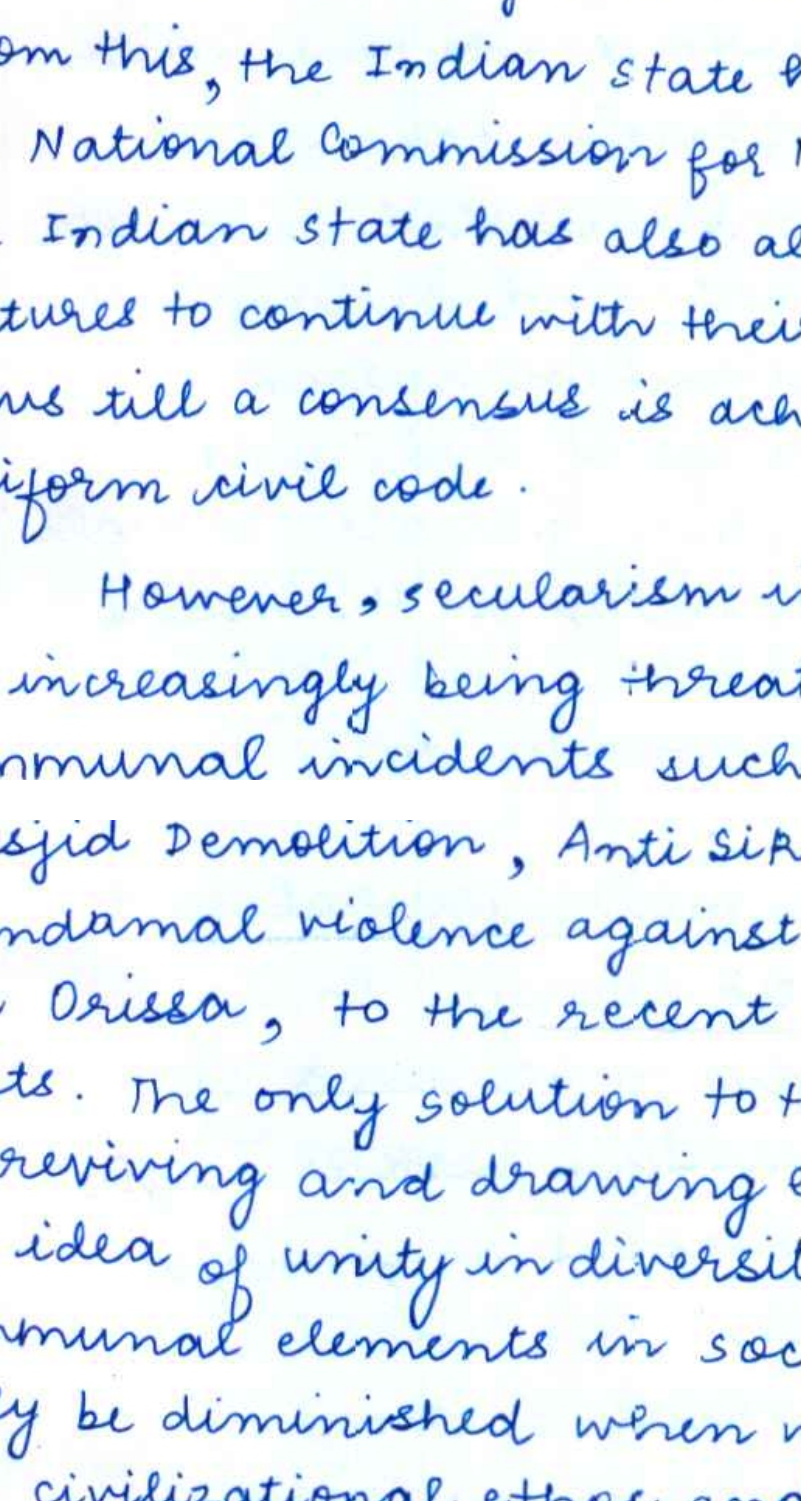 om this, the Indian state
National Commission for
Indian state has also al
tures to continue with their
us till a consensus is ach
iform civil code.
However, secularism i
increasingly being threat
mmunal incidents such
sjid Demolition, Anti Sik
ndamal violence against
Orissa, to the recent
ts. The only solution to t
reviving and drawing
idea of unity in diversit
mmunal elements in soc
ly be diminished when
civilizational ethos and